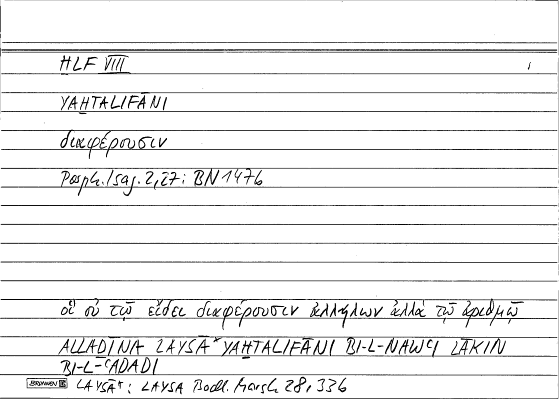 ḪLF VIII 1
YAḪTALIFĀNI
διαφέρουσιν
Porph. Isag. 2,27: BN 147b
οἳ οὐ τῷ εἴδει διαφέρουσιν ἀλλήλων ἀλλὰ τῷ ἀριθμῷ
ALLAḎINA LAYSĀ* YAḪTALIFĀNI BI-L-NAWʿI LĀKIN
BI-L-ʿADADI
BRUNNEN LAYSĀ*: LAYSA Bodl. Marsh 28,336